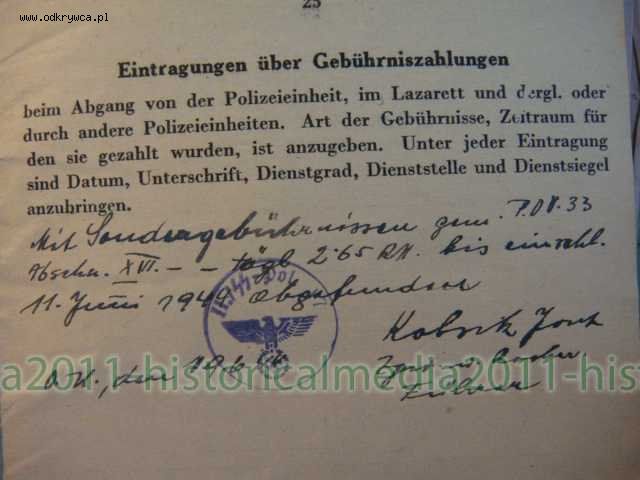 www.odkrywca.pl
25
Eintragungen über Gebührniszahlungen
beim Abgang von der Polizeieinheit, im Lazarett und dergl. oder
durch andere Polizeieinheiten. Art der Gebührnisse, Zeitraum für
den sie gezahlt wurden, ist anzugeben. Unter jeder Eintragung
sind Datum, Unterschrift, Dienstgrad, Dienststelle und Dienstsiegel
anzubringen.
Mit Sondergebührnissen gem. P.DV. 33
Abschn. XVI. - - tägl. 2.65 RM. bis einschl.
11. Juni 194 abgefunden
a2011-historicalmedia2011-his
O.U., den